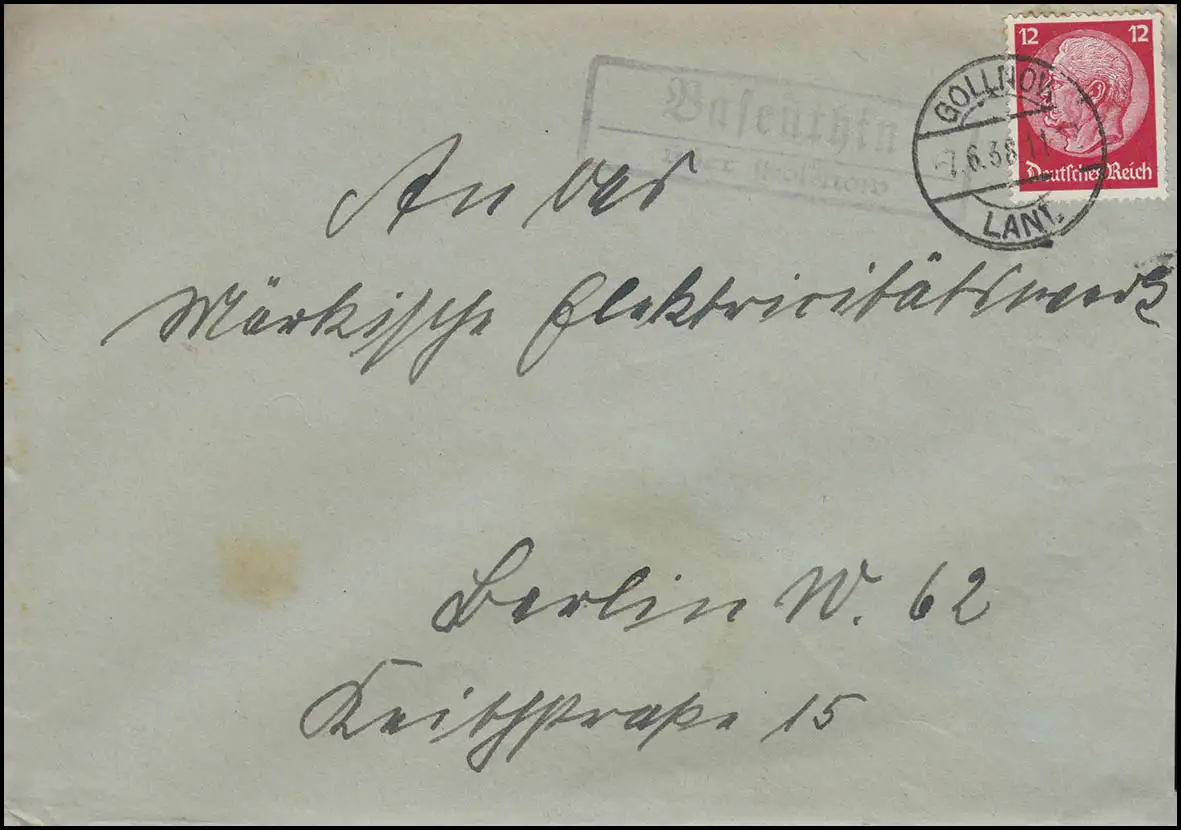 12 12
Deutsches Reich
GOLLNOW
6.38
LAND
Basenthin
über Gollnow
An das
Märkische Elektricitätswerk
Berlin W. 62
Keithstraße 15